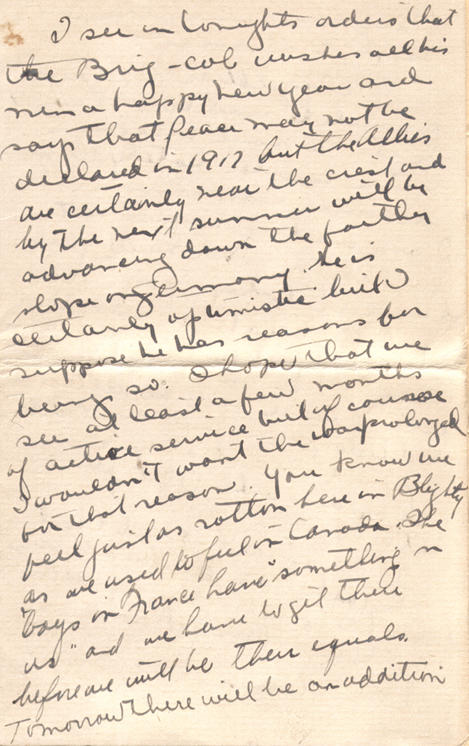 I see in tonights orders that
the Brig-col wishes all his
men a happy new year and
says that Peace may not be
declared in 1917 but the Allies
are certainly near the crest and
by the next summer will be
advancing down the farther
slope on Germany. He is
certainly optimistic but I
suppose he has reasons for
being so. I hope that we
see at least a few months
of active service but of course
I wouldn't want the war prolonged
for that reason. You know we
feel just as rotten here in Blighty
as we used to feel in Canada. The
"boys in France have "something on
us" and we have to get there
before we will be their equals.
Tomorrow there will be an addition